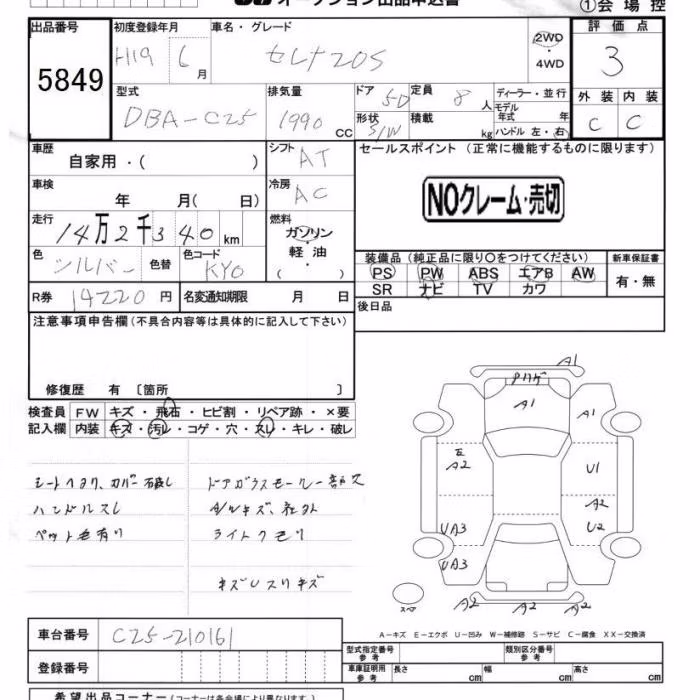 オークション出品申込書
①会場控
出品番号
5849
初度登録年月
H19 6月
車名・グレード
セレナ20S
2WD
・
4WD
評価点
3
型式
DBA-C25
排気量
1990 CC
ドア 5D
定員 8人
形状 S/W
積載 kg
ディーラー・並行
モデル
年式 年
ハンドル 左・右
外装 内装
C C
車歴
自家用・( )
シフト AT
車検
年 月( 日)
冷房 AC
走行
14万2千340km
燃料
ガソリン
・
軽・油
( )
色 シルバー 色替
色コード KY0
R券 14220円
名変通知期限 月 日
セールスポイント (正常に機能するものに限ります)
NOクレーム・売切
装備品 (純正品に限り〇をつけてください)
PS PW ABS エアB AW
SR ナビ TV カワ
新車保証書
有・無
後日品
注意事項申告欄(不具合内容等は具体的に記入して下さい)
修復歴 有 〔箇所 〕
検査員 FW キズ・飛石・ヒビ割・リペア跡・×要
記入欄 内装 キズ・汚レ・コゲ・穴・スレ・キレ・破レ
シートヘタリ、カバー破レ
ハンドルスレ
ペット毛有り
ドアガラスモール一部欠
A/Wキズ、社外
ライトクモリ
キズUスリキズ
A1
A1
A1
A2
U1
A2
UA3
U2
UA3
A2 A2 A2
スペア
A-キズ E-エクボ U-凹み W-補修跡 S-サビ C-腐食 XX-交換済
車台番号 C25-210161
登録番号
型式指定番号
参考
類別区分番号
参考
車庫証明用
参考
長さ cm
幅 cm
高さ cm
希望出品コーナー(コーナーは各会場により異なります)